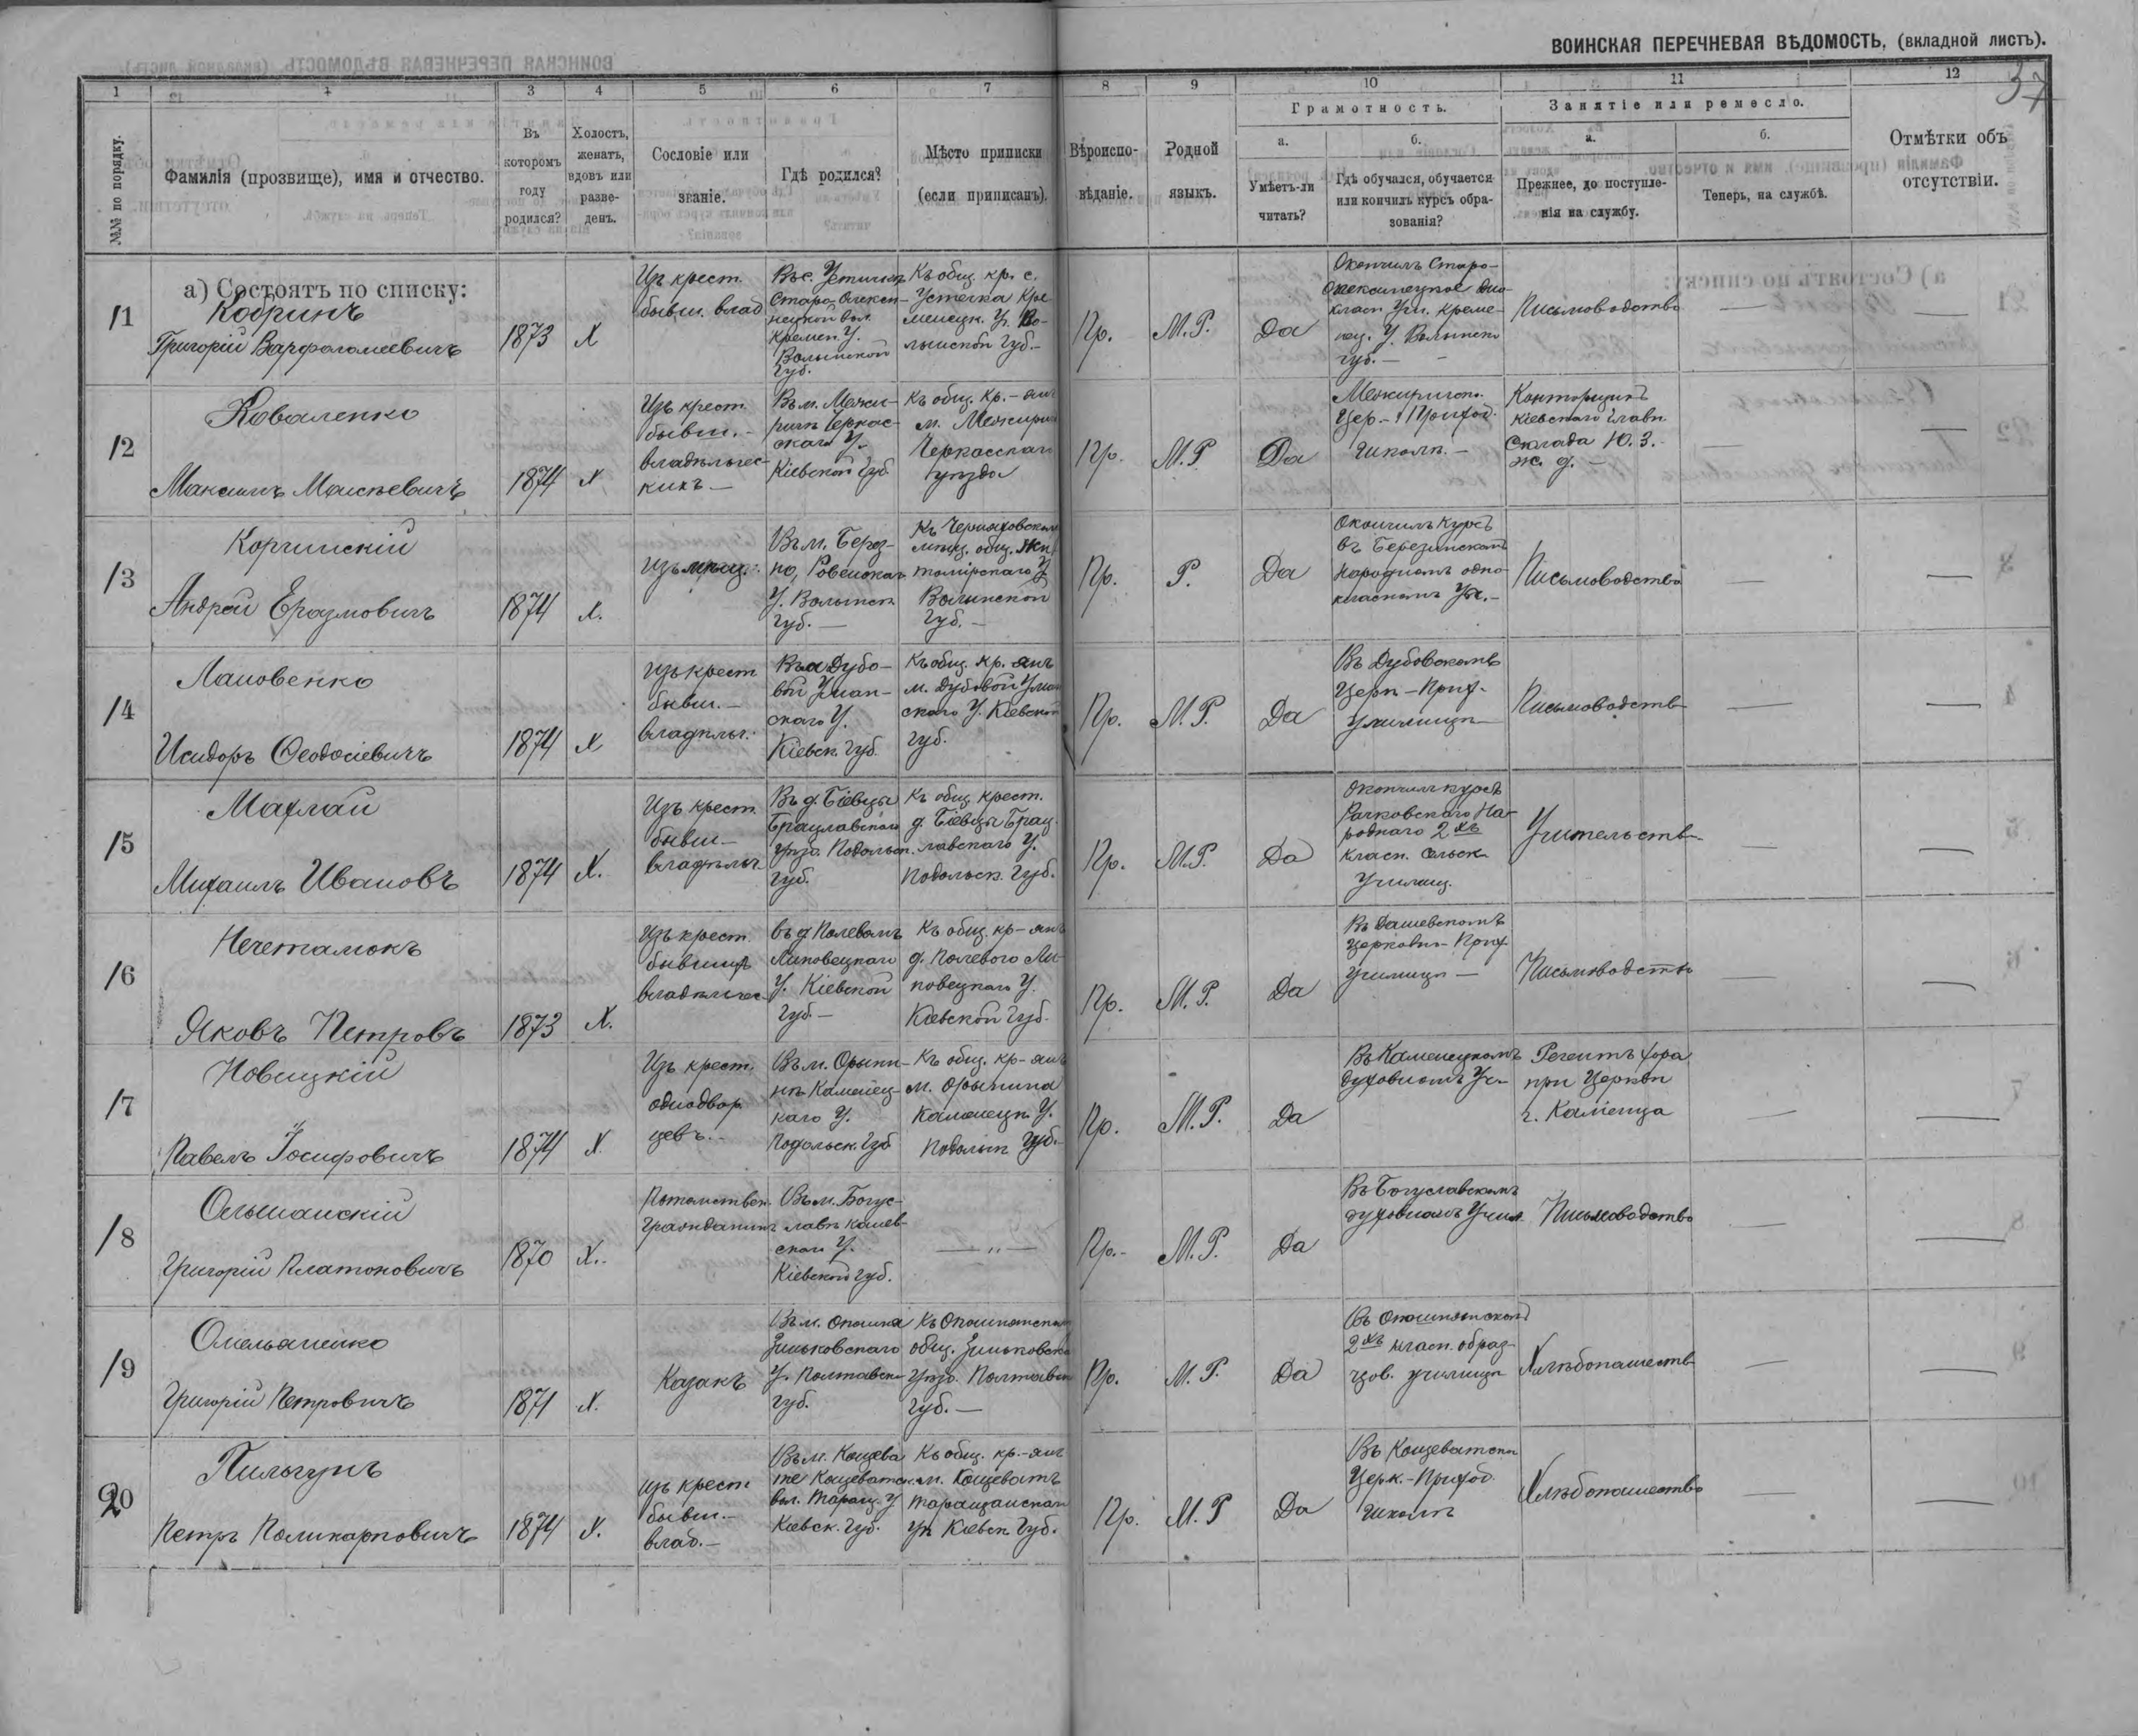 ВОИНСКАЯ ПЕРЕЧНЕВАЯ ВѢДОМОСТЬ, (вкладной листъ).
37
1
3
4
5
6
7
8
9
10
11
12
№№ по порядку.
Фамилія (прозвище), имя и отчество.
Въ
которомъ
году
родился?
Холостъ,
женатъ,
вдовъ или
разве-
денъ.
Сословіе или
званіе.
Гдѣ родился?
Мѣсто приписки
(если приписанъ).
Вѣроиспо-
вѣданіе.
Родной
языкъ.
Грамотность.
а.
Умѣетъ-ли
читать?
б.
Гдѣ обучался, обучается
или кончилъ курсъ обра-
зованія?
Занятіе или ремесло.
а.
Прежнее, до поступле-
нія на службу.
б.
Теперь, на службѣ.
Отмѣтки объ
отсутствіи.
а) Состоятъ по списку:
11
Кобринъ
Григорій Варфоломеевичъ
1873
Х
Изъ крест.
бывш. влад
Въ с.
Старо-Олексі-
нецкой вол.
Кремен. У.
Волынской
Губ.
Къ общ. кр. с.
Устечка Кре
менецк. У. Во-
лынской Губ.-
Пр.
М.Р.
Да
Окончилъ Старо-
класн Уч. Кремене-
У. Волынск
Губ. -
Письмоводство
—
—
12
Коваленко
Максимъ Моисѣевичъ
1874
Х
Изъ крест.
бывш.-
владѣльчес-
кихъ -
Въ м. Межи-
ричи Черкас-
скаго У.
Кіевской Губ.
Къ общ. кр.-янъ
м. Межирич
Черкасскаго
уѣзда
Пр.
М.Р
Да
Межиричск.
Цер.-Приход.
школѣ. -
Конторщикъ
Кіевскаго Главн.
Склада Ю.З.
ж. д. -
—
—
13
Корчинскій
Андрей Еразмовичъ
1874
Х.
Изъ мѣщ.
Въ м. Берез-
но, Ровенскаг.
У. Волынск
Губ. -
Къ Черняховском
мѣщ. общ. Жи
томірскаго У
Волынской
Губ. -
Пр.
Р.
Да
Окончилъ курсъ
въ Березинскомъ
Народномъ одно
класномъ Уч.-
Письмоводство
—
—
14
Лановенко
Исидоръ Ѳеодосіевичъ
1874
Х
Изъ крест
бывш. -
владѣльч.
Дубо-
вой Уман-
скаго У.
Кіевск. Губ.
Къ общ. кр. янъ
м. Дубовой Уман
скаго У. Кіевской
Губ.
Пр.
М.Р.
Да
Въ Дубовскомъ
Церк-Прих.
училищѣ
Письмоводств
—
—
15
Махлай
Михаилъ Ивановъ
1874
Х.
Изъ крест.
бывш -
владѣльч
Въ д. Біевцы
Брацлавскаго
Уѣзд. Подольск.
Губ.
Къ общ. крест.
д. Біевцы Брац
лавскаго У.
Подольск. Губ.
Пр.
М.Р.
Да
Окончилъ курсъ
Рачковскаго На-
роднаго 2хъ
класн. Сельск
Училищ.
Учительств
—
—
16
Нечетамокъ
Яковъ Петровъ
1873
Х.
Изъ крест.
бывшихъ
владѣльчес
въ д. Полевомъ
Липовецкаго
У. Кіевской
Губ. -
Къ общ. кр-янъ
д. Полевого Ли
повецкаго У.
Кіевской Губ.
Пр.
М.Р.
Да
Въ Дашевскомъ
Церковн-Прих
училищѣ -
Письмоводство
—
—
17
Новицкій
Павелъ Іосифовичъ
1874
Х
Изъ крест.
однодвор
цевъ. -
Въ м. Орыни-
нѣ Каменец-
каго У.
Подольск. Губ
Къ общ. кр-янъ
м. Орынина
Каменецк У.
Подольск Губ.
Пр.
М.Р.
Да
Въ Каменецкомъ
духовномъ Уч-
Регентъ хора
при Церкви
г. Каменца
—
—
18
Ольшанскій
Григорій Платоновичъ
1870
Х.
Потомствен.
гражданинъ
Въ м. Богус-
лавѣ Канев-
скаго У.
Кіевской губ.
— „ —
Пр.-
М.Р.
Да
Въ Богуславскомъ
духовномъ Учил
Письмоводство
—
—
19
Омельяненко
Григорій Петровичъ
1871
Х.
Казакъ
Въ м. Опошня
Зиньковскаго
У. Полтавск
Губ.
Къ Опошнянском
общ. Зиньковска
Уѣзд. Полтавск
Губ. -
Пр.
М.Р.
Да
Въ Опошнянском
2хъ класн. образ-
цов. училищѣ
Хлѣбопашеств
—
—
20
Пильгунъ
Петръ Поликарповичъ
1874
Х.
Изъ крест
бывш. -
влад. -
Въ м. Кошева
те Кошеватск.
вол. Таращ. У
Кіевск. Губ.
Къ общ. кр.-янъ
м. Кошеватъ
Таращанскаг
Уѣ Кіевск Губ.
Пр.
М.Р
Да
Въ Кошеватском
Церк.-Приход.
школѣ
Хлѣбопашество
—
—